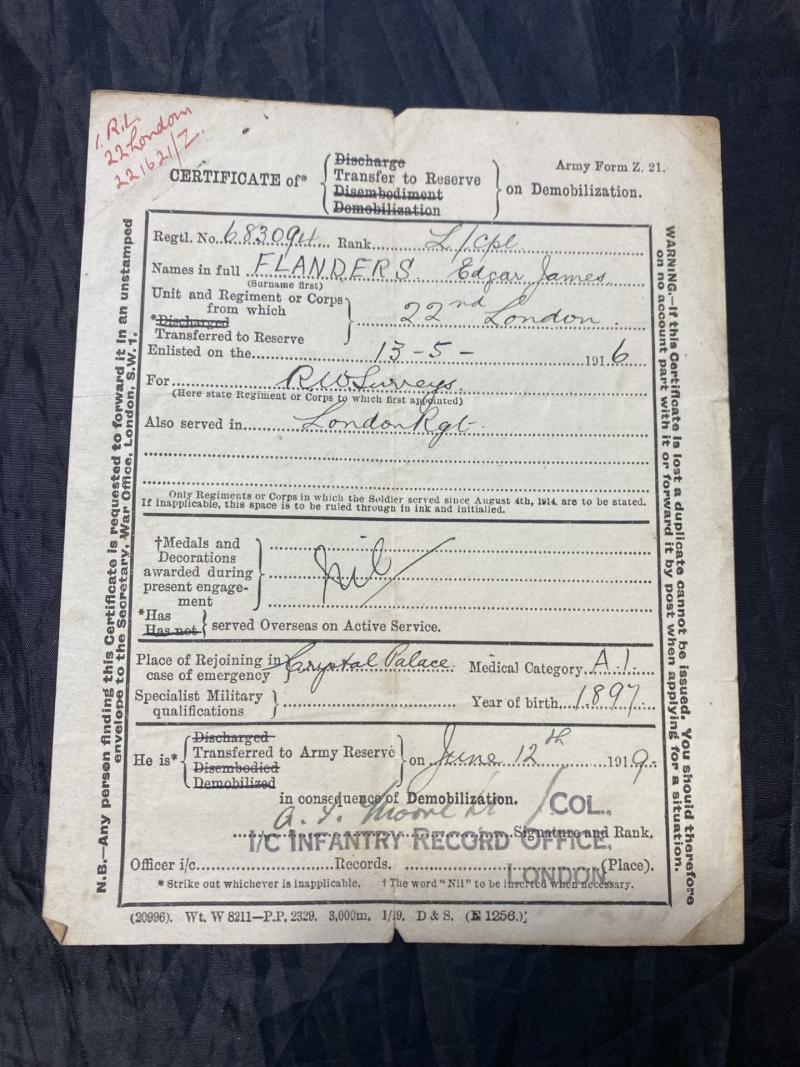 1. R.L.
22 London
221621/Z.
Army Form Z. 21.
CERTIFICATE of* { Discharge
Transfer to Reserve
Disembodiment
Demobilization } on Demobilization.
Regtl. No. 683094 Rank L/Cpl
Names in full FLANDERS. Edgar James.
(Surname first)
Unit and Regiment or Corps
from which
*Discharged
Transferred to Reserve } 22nd London.
Enlisted on the 13-5- 1916
For R W Surreys.
(Here state Regiment or Corps to which first appointed)
Also served in London Rgt.
Only Regiments or Corps in which the Soldier served since August 4th, 1914, are to be stated.
If inapplicable, this space is to be ruled through in ink and initialled.
†Medals and
Decorations
awarded during
present engage-
ment } Nil
*Has
Has not } served Overseas on Active Service.
Place of Rejoining in
case of emergency } Crystal Palace. Medical Category A.1.
Specialist Military
qualifications } Year of birth 1897
He is* { Discharged
Transferred to Army Reserve
Disembodied
Demobilized } on June 12th 1919.
in consequence of Demobilization.
Moore COL.
Signature and Rank.
I/C INFANTRY RECORD OFFICE,
Officer i/c Records. LONDON (Place).
* Strike out whichever is inapplicable. † The word "Nil" to be inserted when necessary.
(20996). Wt. W 8211—P.P. 2329. 3,000m. 1/19. D & S. (E 1256.)
N.B.—Any person finding this Certificate is requested to forward it in an unstamped
envelope to the Secretary, War Office, London, S.W. 1.
WARNING.—If this Certificate is lost a duplicate cannot be issued. You should therefore
on no account part with it or forward it by post when applying for a situation.